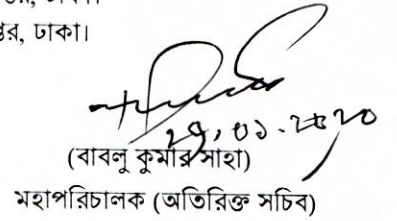 ঢাকা।
২৭.০১.২০২০
(বাবলু কুমার সাহা)
মহাপরিচালক (অতিরিক্ত সচিব)